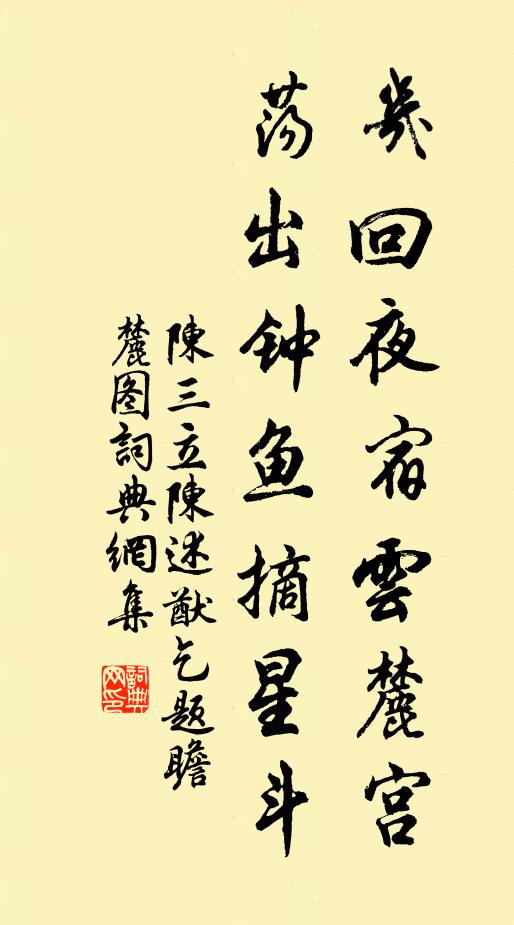 幾回夜宿雲麓宮
荡出钟鱼摘星斗
陳三立陳述猷乞題瞻
麓图詞典網集
詞典
网印